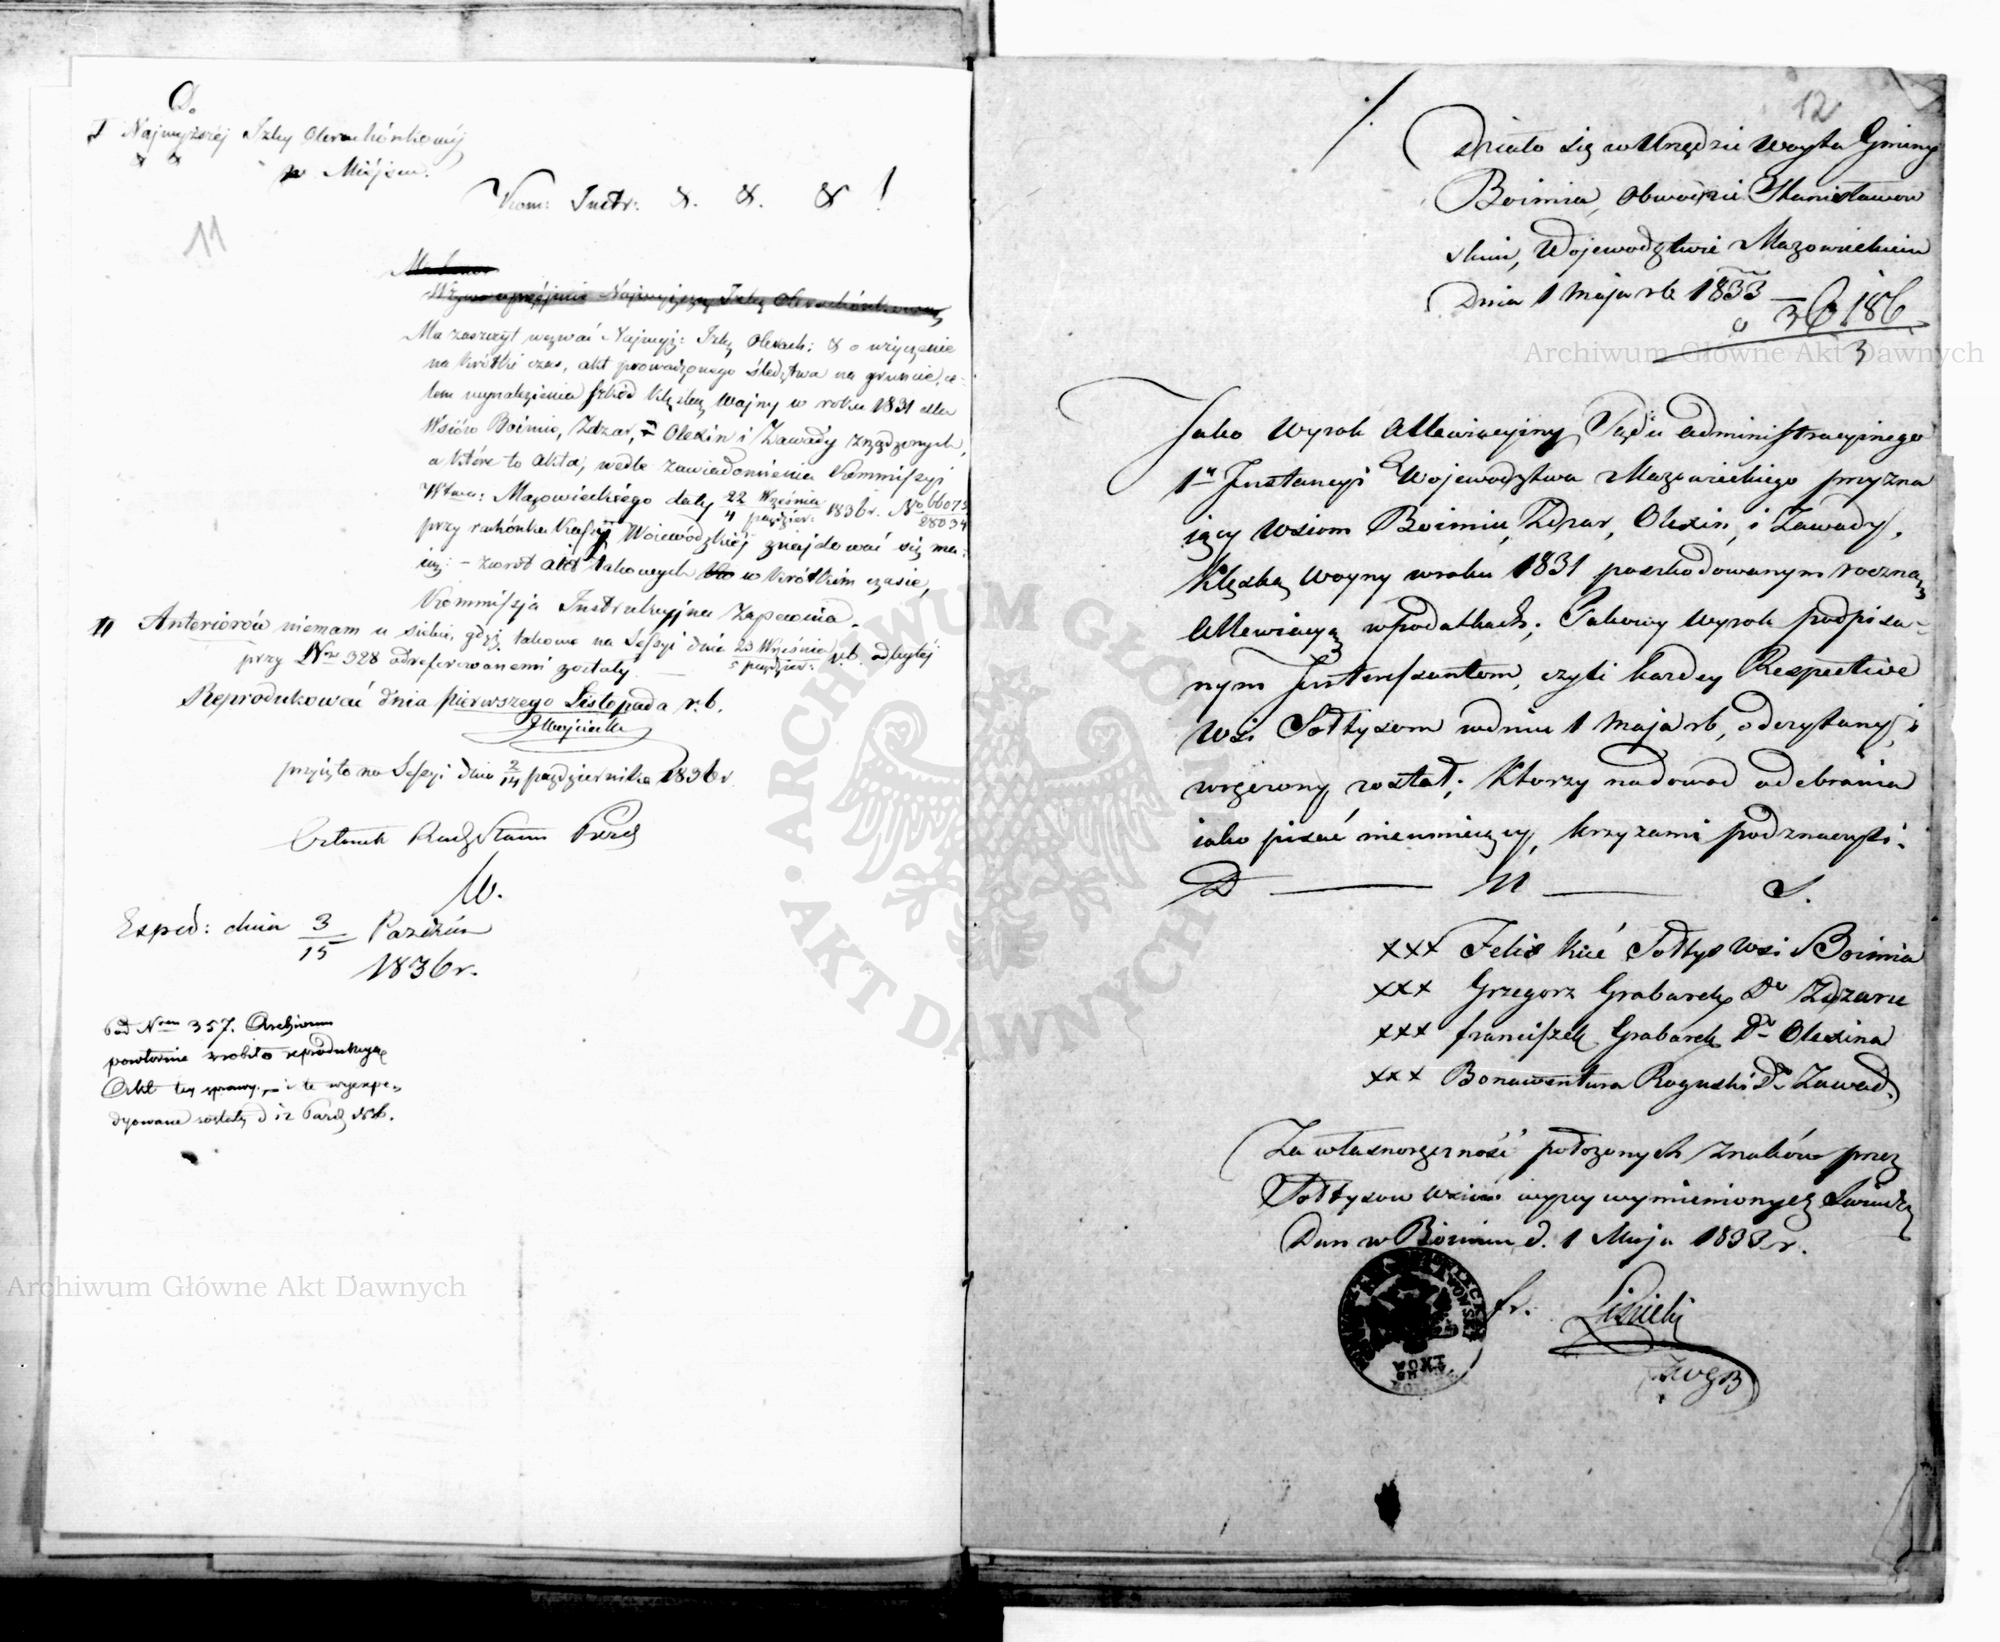 Do
I Najwyższéj Izby Obrachónkowéj
w Miéjscu.
11
Kom: Instr: & . & . & !
Ma zaszczyt wezwać Najwyż: Izbę Obrach: & o użyczenie
na krótki czas, akt prowadzonego śledztwa na gruncie, ce-
lem wynalezienia szkód klęską wojny w roku 1831 dla
Wsiów Boimie, Zdzar, Olexin i Zawady zrządzonych,
a które to akta, wedle zawiadomienia Kommissyi
Wtwa: Mazowieckiego daty 22 Września / 4 paździer: 1836 r. No 66075 / 28034
przy rachónku Kassy Woiewódzkiéj znajdować się ma-
ią: – zwrot akt takowych w krótkim czasie,
Kommissja Instrukcyjna zapewnia.
II Anteriorów niemam u siebie, gdyż takowe na Sessyi dnia 23 Września / 5 paździer: r.b. odbytéj
przy Nrze 328 odreferowanemi zostały. —
Reprodukować dnia pierwszego Listopada r.b.
JWojcicki
przyięto na Sessyi dnia 2/14 października 1836 r.
Członek Rady Stanu Prezd
W.
Exped: dnia 3/15 Paździer
1836 r.
Pod Nrem 357. Archiwum
powtórnie zrobiło reprodukcyę
Akt tey sprawy. i te wyexpe-
dyowane zostały d 12 Paźd 1836.
12
Działo się w Urzędzie Woyta Gminy
Boimia, Obwodzie Stanisławow
skim, Województwie Mazowieckim
Dnia 1 Maja rb 1833
Jako Wyrok Allewiacyiny Sądu administracyinego
1ey Instancyi Województwa Mazowieckiego przyzna
iący wsiom Boimiu, Zdzar, Olexin, i Zawady,
Klęską Woyny w roku 1831 poszkodowanym roczną
Allewiacyą w podatkach; Takowy Wyrok podpisa-
nym Interessantom, czyli każdey Respective
Wsi Sołtysom w dniu 1 Maja rb, odczytany, i
wręczony został; Którzy na dowod odebrania
iako pisać nieumieiący, krzyżami podznaczyli.
D — U — S.
xxx Felix Kić Sołtys Wsi Boimia
xxx Grzegorz Grabarek Do Zdzaru
xxx Franciszek Grabarek Do Olexina
xxx Bonawentura Roguski Do Zawad.
Za własnoręczność położonych znaków przez
Sołtysow wsiów wyżey wymienionych świadczę
Dan w Boimiu d. 1 Maja 1833 r.
Fr. Lisicki
ZWGB
Archiwum Główne Akt Dawnych
Archiwum Główne Akt Dawnych
ARCHIWUM GŁÓWNE AKT DAWNYCH